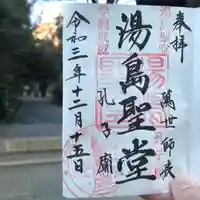 奉拝
萬世師表
湯島聖堂
孔子廟
令和三年十二月十五日